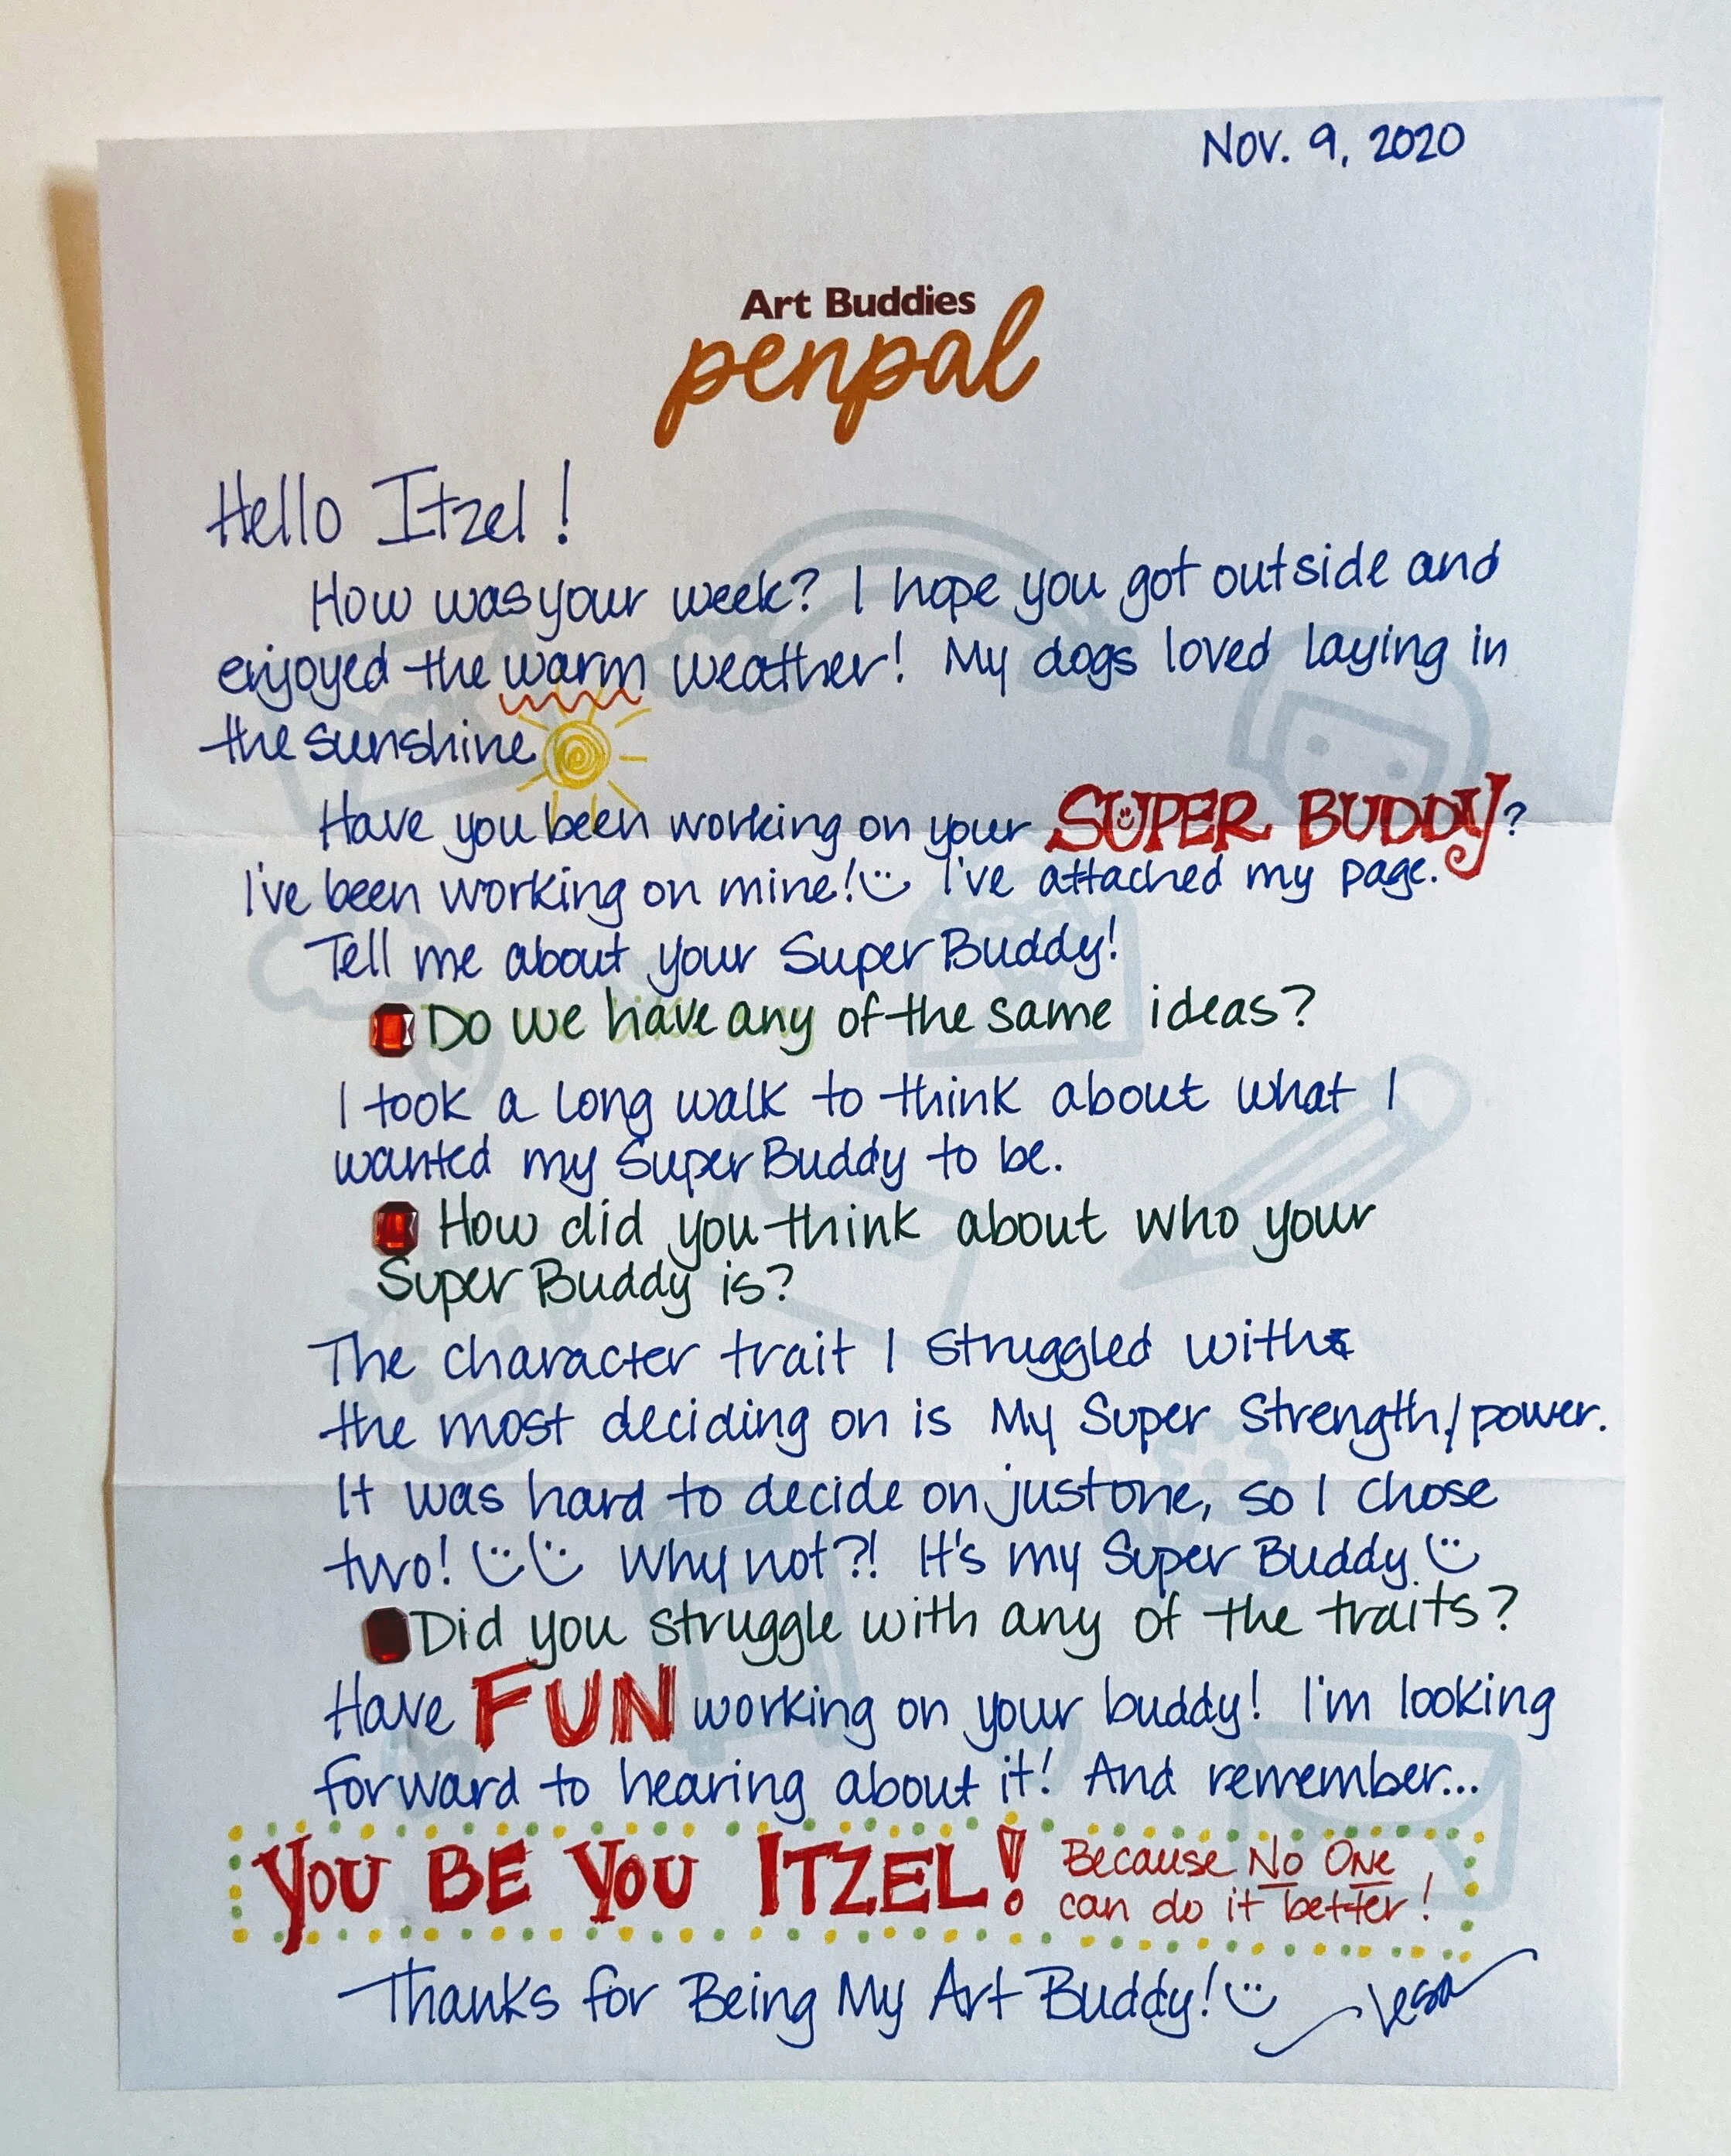 Nov. 9, 2020
Art Buddies
penpal
Hello Itzel!
How was your week? I hope you got outside and
enjoyed the warm weather! My dogs loved laying in
the sunshine
Have you been working on your SUPER BUDDY?
I've been working on mine! I've attached my page.
Tell me about your Super Buddy!
Do we have any of the same ideas?
I took a long walk to think about what I
wanted my Super Buddy to be.
How did you think about who your
Super Buddy is?
The character trait I struggled with
the most deciding on is My Super Strength/power.
It was hard to decide on just one, so I chose
two! Why not?! It's my Super Buddy
Did you struggle with any of the traits?
Have FUN working on your buddy! I'm looking
forward to hearing about it! And remember...
YOU BE YOU ITZEL! Because No One
can do it better!
Thanks for Being My Art Buddy! Lesa